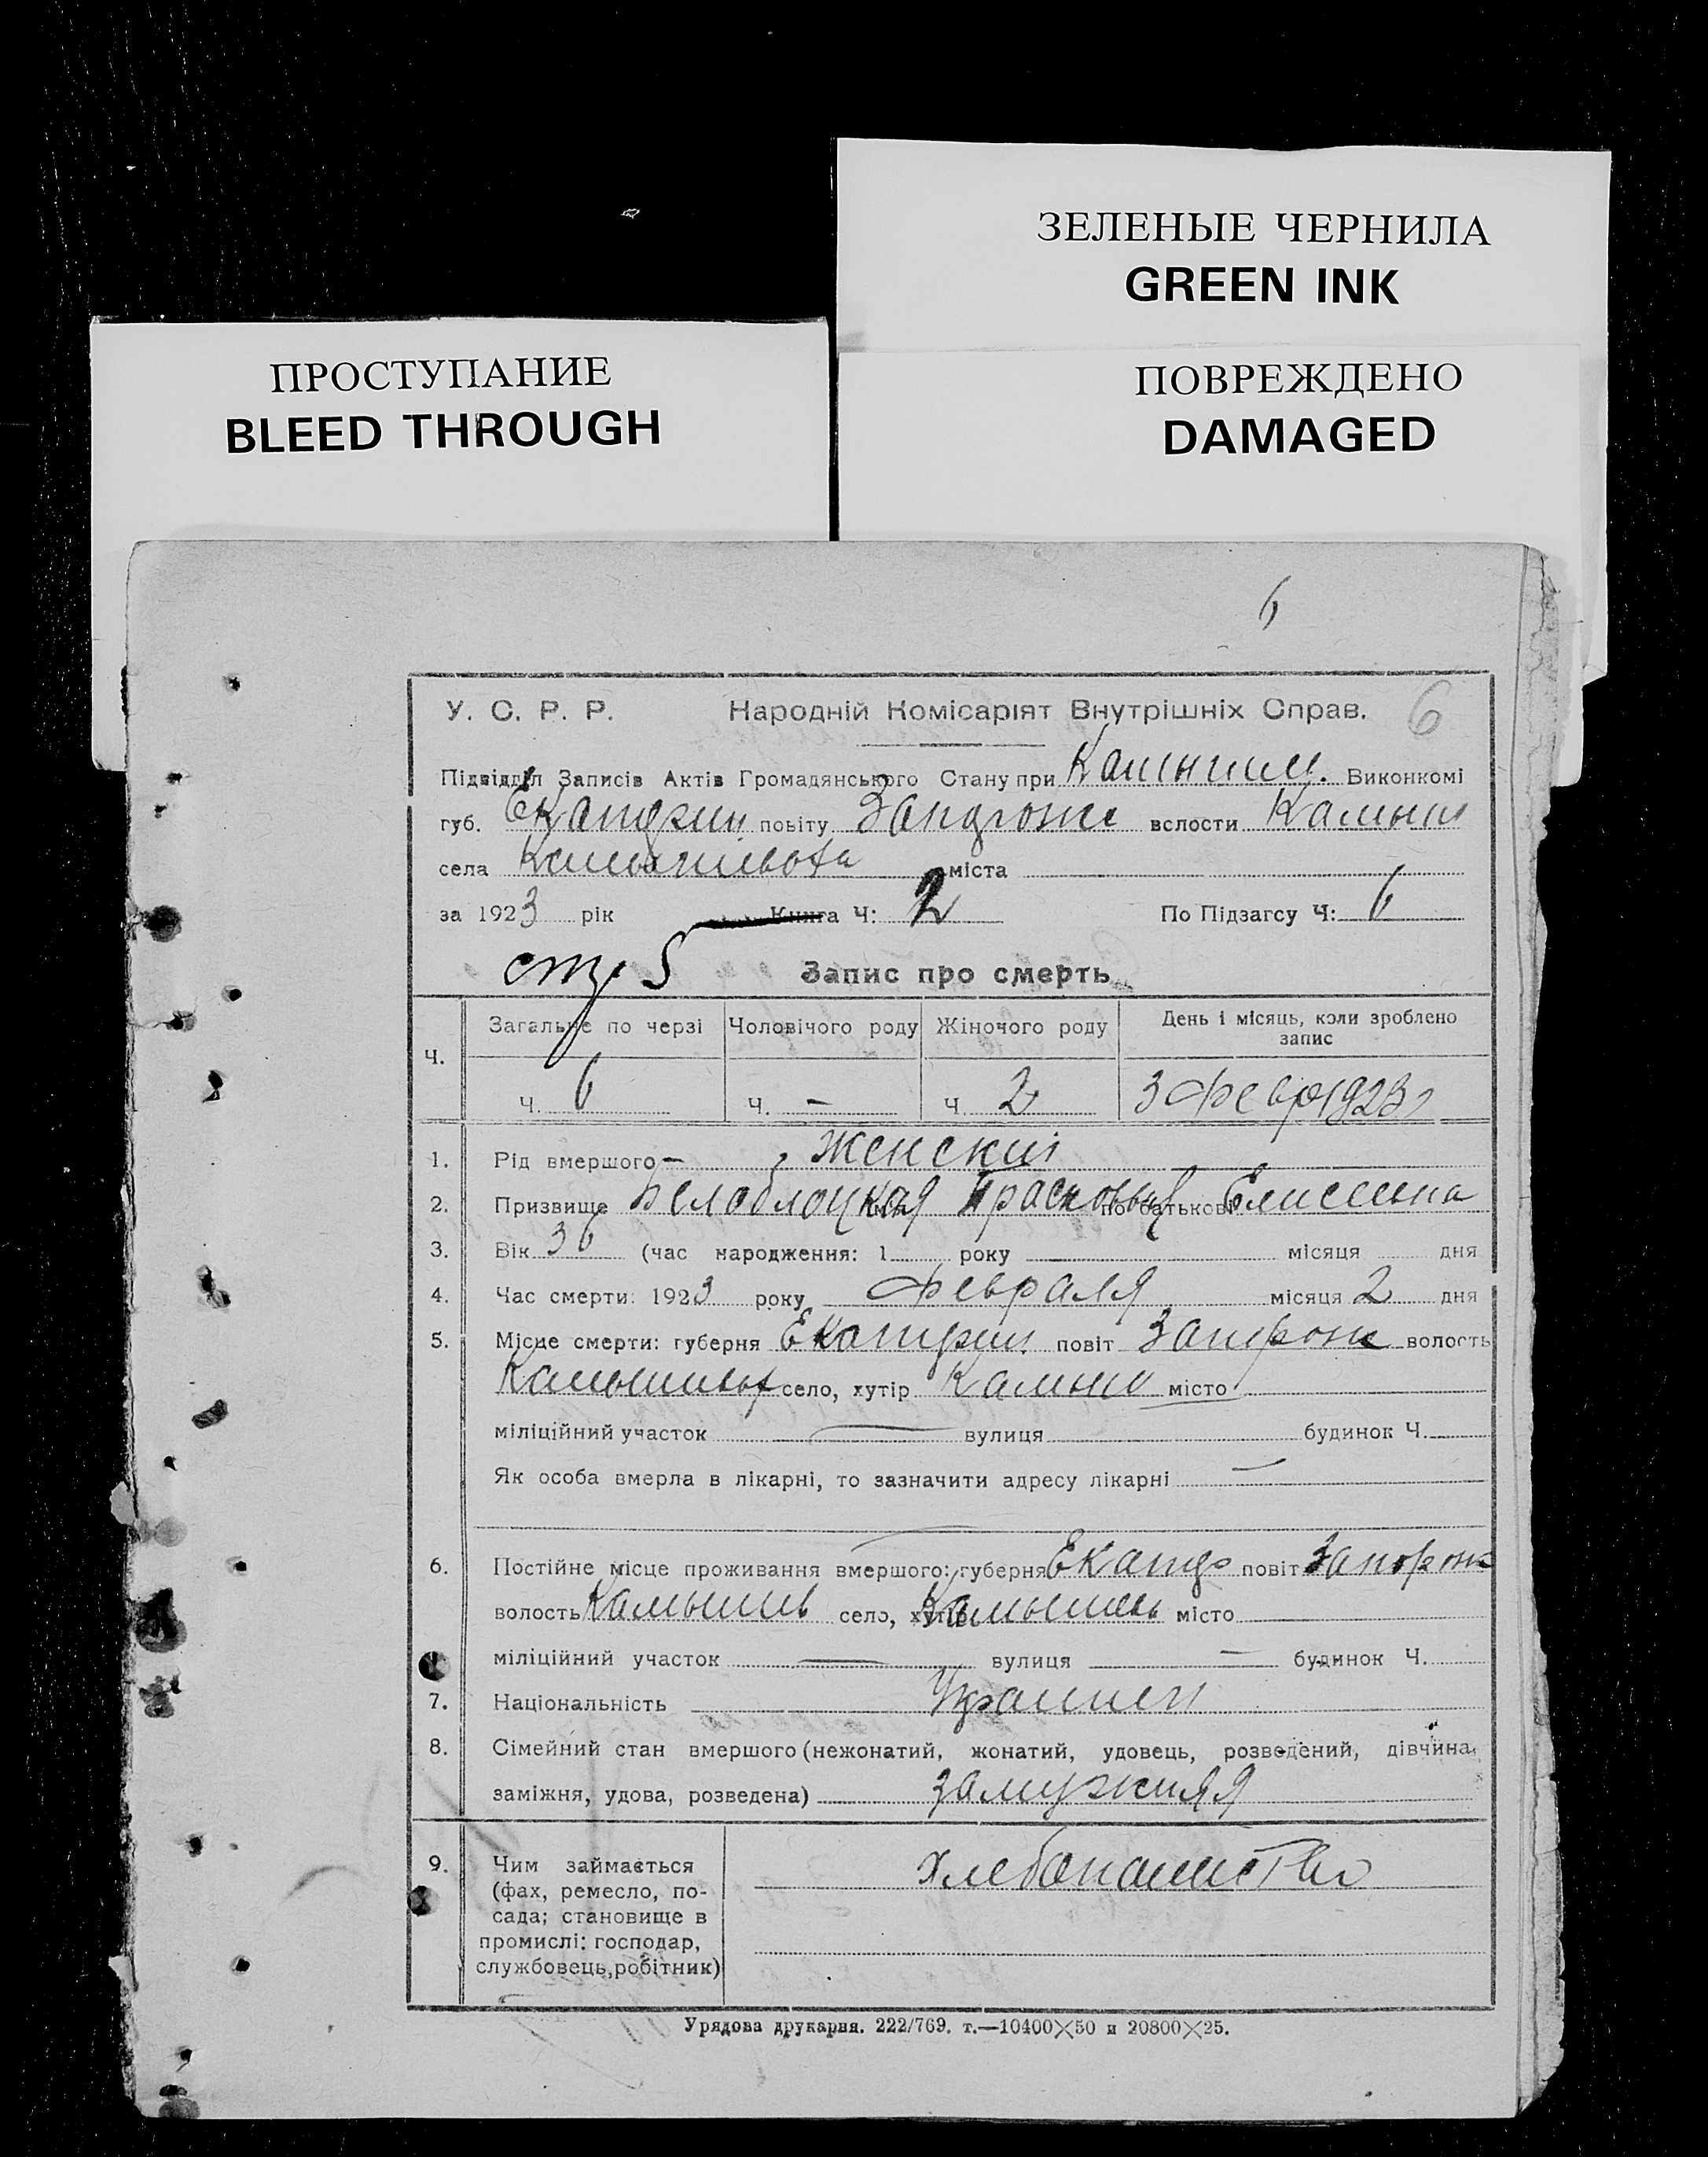 ЗЕЛЕНЫЕ ЧЕРНИЛА
GREEN INK
ПРОСТУПАНИЕ
BLEED THROUGH
ПОВРЕЖДЕНО
DAMAGED
6
У. С. Р. Р. Народній Комісаріят Внутрішніх Справ. 6
Підвідділ Записів Актів Громадянського Стану при Виконкомі
губ. Екатерин повіту Запорож вслости Камыш
села міста
за 1923 рік Книга Ч: 2 По Підзагсу Ч: 6
стр 5 Запис про смерть
Ч. Загальне по черзі Чоловічого роду Жіночого роду День і місяць, коли зроблено запис
Ч. 6 Ч. — Ч. 2 3 Февр 1923 г
1. Рід вмершого — женский
2. Призвище Белоблоцкая Прасковья по батькові Елисеевна
3. Вік 36 (час народження: 1 року місяця дня
4. Час смерти: 1923 року Февраля місяця 2 дня
5. Місце смерти: губерня Екатерин. повіт Запорож волость
Камышеват село, хутір Камыш місто
міліційний участок — вулиця будинок Ч.
Як особа вмерла в лікарні, то зазначити адресу лікарні —
6. Постійне місце проживання вмершого: губерня Екатер повіт Запорож
волость Камышев село, хутір Камышев місто
міліційний участок — вулиця — будинок Ч.
7. Національність Украин
8. Сімейний стан вмершого (нежонатий, жонатий, удовець, розведений, дівчина,
заміжня, удова, розведена) замужняя
9. Чим займається хлебопашество
(фах, ремесло, по-
сада; становище в
промислі: господар,
службовець, робітник)
Урядова друкарня. 222/769. т.—10400×50 и 20800×25.